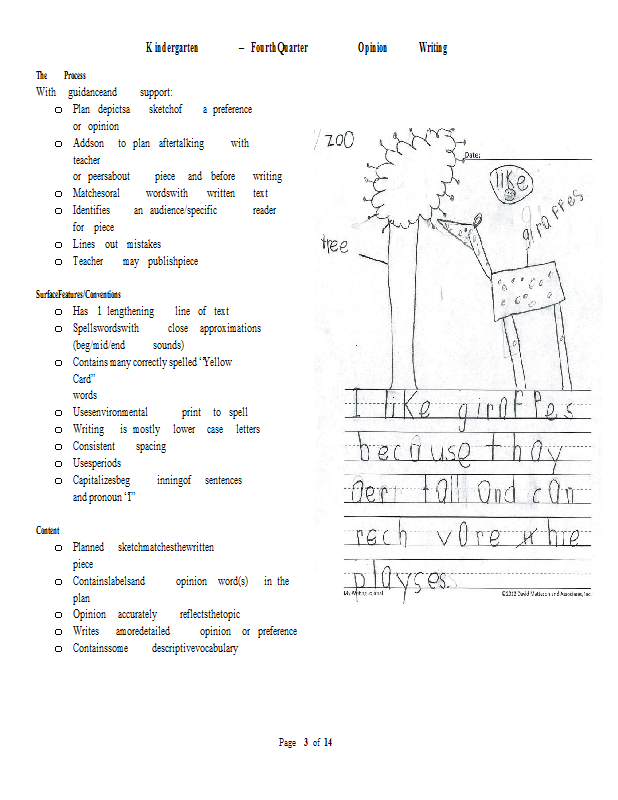 Kindergarten – Fourth Quarter Opinion Writing
The Process
With guidance and support:
Plan depicts a sketch of a preference
or opinion
Adds on to plan after talking with
teacher
or peers about piece and before writing
Matches oral words with written text
Identifies an audience/specific reader
for piece
Lines out mistakes
Teacher may publish piece
Surface Features/Conventions
Has 1 lengthening line of text
Spells words with close approximations
(beg/mid/end sounds)
Contains many correctly spelled "Yellow
Card"
words
Uses environmental print to spell
Writing is mostly lower case letters
Consistent spacing
Uses periods
Capitalizes beginning of sentences
and pronoun "I"
Content
Planned sketch matches the written
piece
Contains labels and opinion word(s) in the
plan
Opinion accurately reflects the topic
Writes a more detailed opinion or preference
Contains some descriptive vocabulary
zoo
Date:
like
giraffes
tree
I like giraffes
because thay
aer tall and can
rech vare hie
playses.
My Writing Journal ©2012 David Matteson and Associates, Inc.
Page 3 of 14